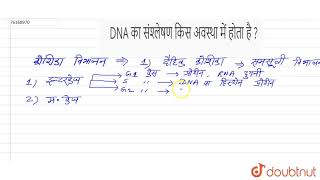 76160970
DNA का संश्लेषण किस अवस्था में होता है ?
कोशिका विभाजन ⇒ 1) दैहिक कोशिका → समसूत्री विभाजन
1) इन्टरफेज → G1 फेज → प्रोटीन, RNA
S " → DNA व हिस्टोन प्रोटीन
G2 " →
2) म. फेज
doubtnut